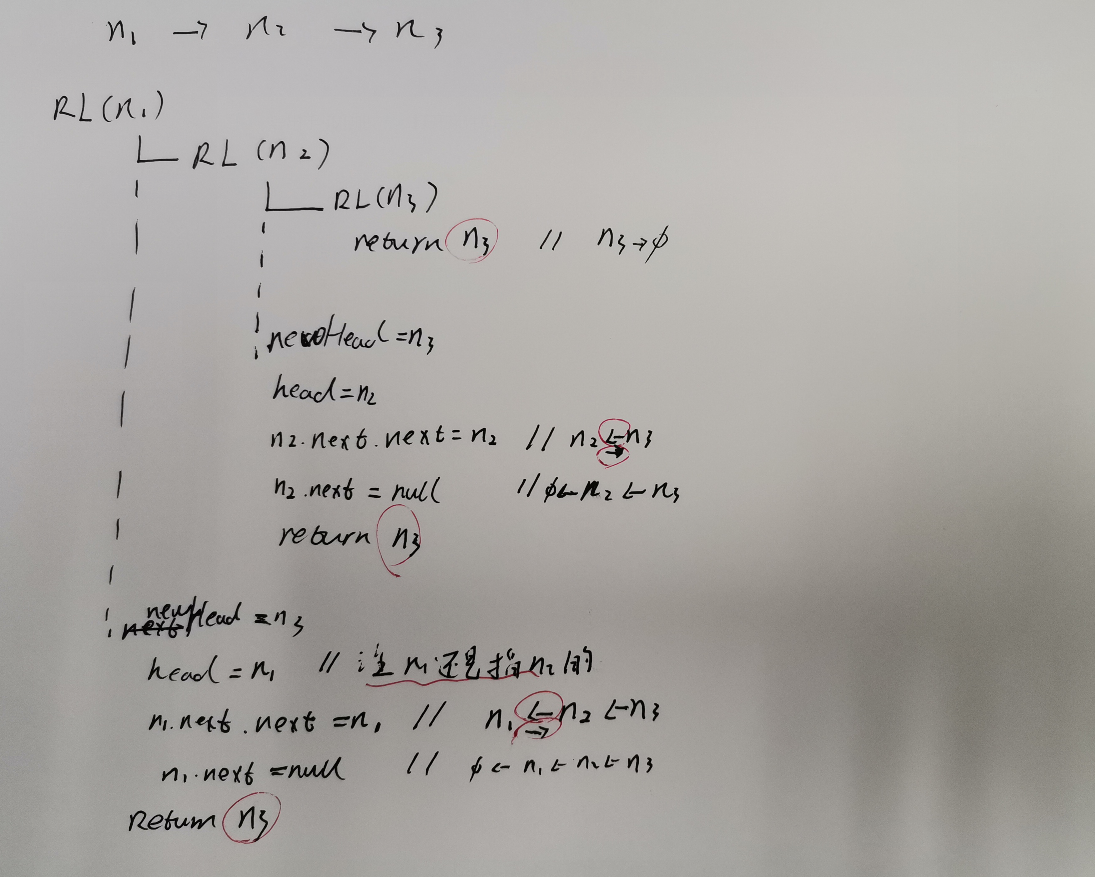 n₁ → n₂ → n₃
RL(n₁)
RL (n₂)
RL(n₃)
return n₃ // n₃→∅
newHead=n₃
head=n₂
n₂.next.next=n₂ // n₂ ← → n₃
n₂.next = null //∅←n₂←n₃
return n₃
next newHead = n₃
head=n₁ // 注 n₁还是指n₂的
n₁.next.next=n₁ // n₁ ← → n₂←n₃
n₁.next=null // ∅← n₁←n₂←n₃
Return n₃